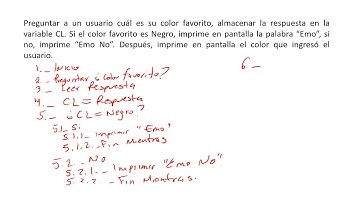 Preguntar a un usuario cuál es su color favorito, almacenar la respuesta en la
variable CL. Si el color favorito es Negro, imprime en pantalla la palabra “Emo”, si
no, imprime “Emo No”. Después, imprime en pantalla el color que ingresó el
usuario.
1._ Inicio
2._ Preguntar ¿ Color favorito?
3_ Leer Respuesta
4._ CL = Respuesta
5._ ¿ CL = Negro?
5.1_ Si
5.1.1_ Imprimir "Emo"
5.1.2_ Fin Mientras
5.2_ No
5.2.1._ Imprimir "Emo No"
5.2.2_ Fin Mientras.
6_